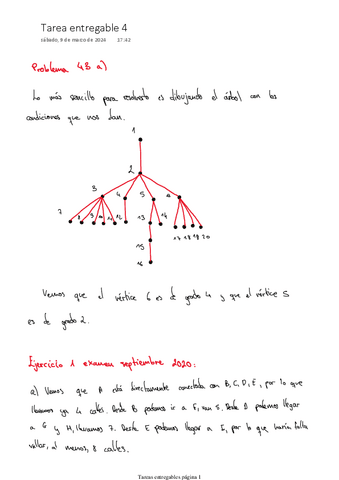 Tarea entregable 4
sábado, 9 de marzo de 2024 17:42
Problema 48 a)
Lo más sencillo para resolverlo es dibujando el árbol con las
condiciones que nos dan.
1
2
3 4 5 6
7 8 9 10 11 12 13 14 17 18 19 20
15
16
Vemos que el vértice 6 es de grado 4 y que el vértice 5
es de grado 2.
Ejercicio 1 examen septiembre 2020:
a) Vemos que A está directamente conectada con B, C, D, E, por lo que
llevamos ya 4 calles. Desde B podemos ir a F, son 5. Desde podemos llegar
a G y H, llevamos 7. Desde E podemos llegar a I, por lo que haría falta
vallar, al menos, 8 calles.
Tareas entregables página 1